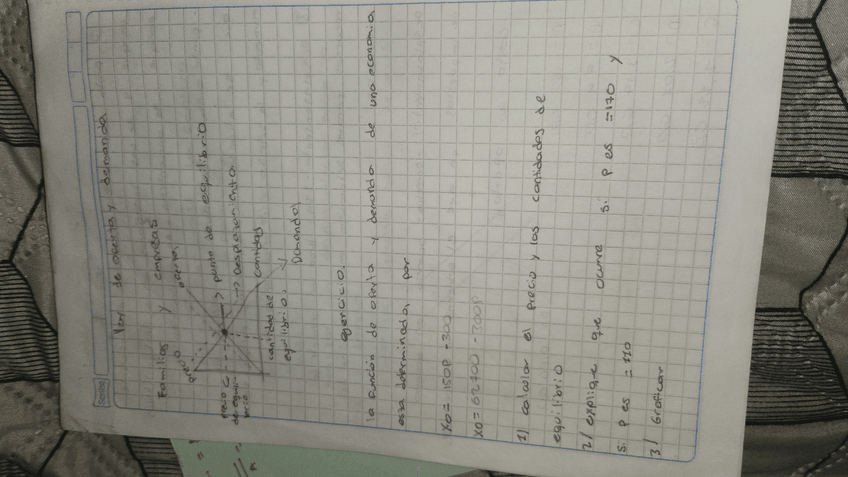 Ley de oferta y demanda
Familias y empresas
precio
oferta
precio
de equili-
brio
punto de equilibrio
Desplazamiento
cantidad
cantidad de
equilibrio
Demanda
ejercicio.
la función de oferta y demanda de una economia
esta determinada por
Xo = 150P - 300
XD =
1) calcular el precio y las cantidades de
equilibrio
2) explique que ocurre si P es = 170 y
si P es = 110
3) Graficar